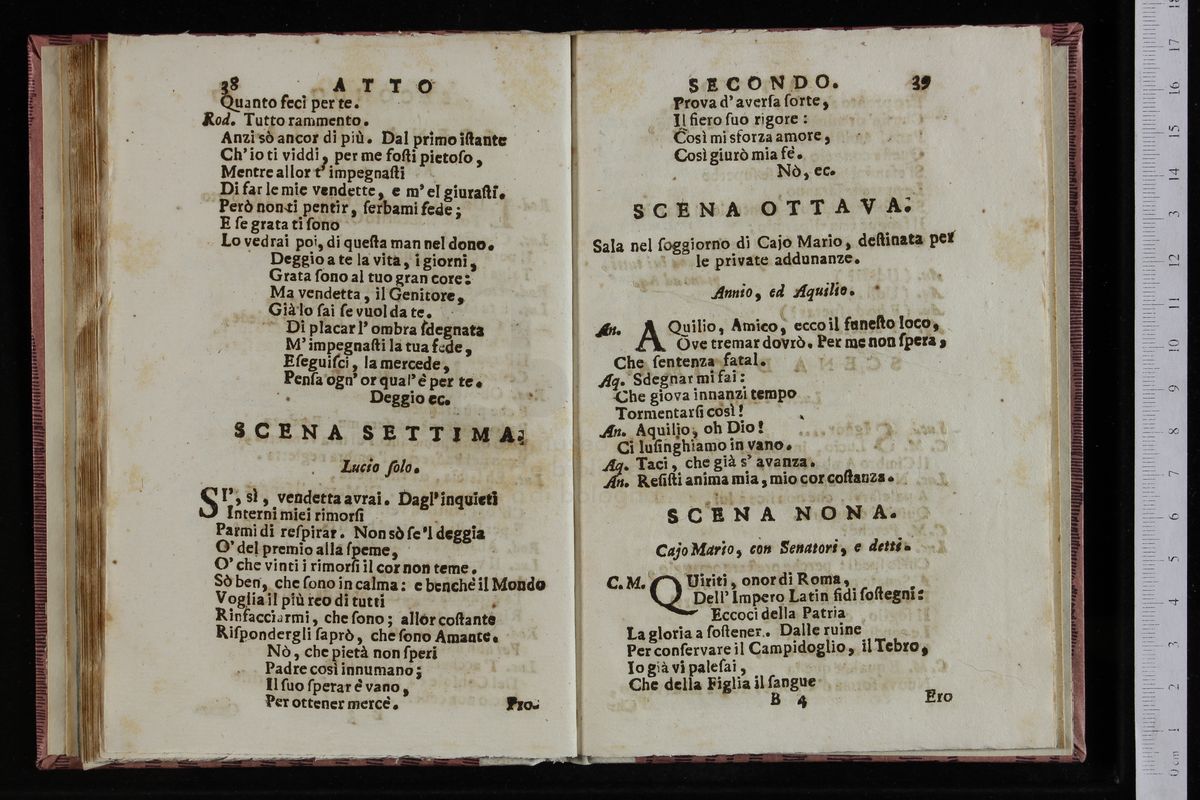 38 ATTO
Quanto feci per te.
Rod. Tutto rammento.
Anzi sò ancor di più. Dal primo iſtante
Ch' io ti viddi, per me foſti pietoſo,
Mentre allor t' impegnaſti
Di far le mie vendette, e m' el giuraſti.
Però non ti pentir, ſerbami fede;
E ſe grata ti ſono
Lo vedrai poi, di queſta man nel dono.
Deggio a te la vita, i giorni,
Grata ſono al tuo gran core:
Ma vendetta, il Genitore,
Già lo ſai ſe vuol da te.
Di placar l' ombra ſdegnata
M' impegnaſti la tua fede,
Eſeguiſci, la mercede,
Penſa ogn' or qual' è per te.
Deggio ec.
SCENA SETTIMA.
Lucio ſolo.
SI', sì, vendetta avrai. Dagl' inquieti
Interni miei rimorſi
Parmi di reſpirar. Non sò ſe 'l deggia
O' del premio alla ſpeme,
O' che vinti i rimorſi il cor non teme.
Sò ben, che ſono in calma: e benchè il Mondo
Voglia il più reo di tutti
Rinfacciarmi, che ſono; allor coſtante
Riſpondergli ſaprò, che ſono Amante.
Nò, che pietà non ſperi
Padre così innumano;
Il ſuo ſperar è vano,
Per ottener mercè.
Pro-
SECONDO. 39
Prova d' averſa ſorte,
Il fiero ſuo rigore:
Così mi sforza amore,
Così giurò mia fè.
Nò, ec.
SCENA OTTAVA.
Sala nel ſoggiorno di Cajo Mario, deſtinata per
le private addunanze.
Annio, ed Aquilio.
An. AQuilio, Amico, ecco il funeſto loco,
Ove tremar dovrò. Per me non ſpera,
Che ſentenza fatal.
Aq. Sdegnar mi fai:
Che giova innanzi tempo
Tormentarſi così!
An. Aquilio, oh Dio!
Ci luſinghiamo in vano.
Aq. Taci, che già s' avanza.
An. Reſiſti anima mia, mio cor coſtanza.
SCENA NONA.
Cajo Mario, con Senatori, e detti.
C. M. QUiriti, onor di Roma,
Dell' Impero Latin fidi ſoſtegni:
Eccoci della Patria
La gloria a ſoſtener. Dalle ruine
Per conſervare il Campidoglio, il Tebro,
Io già vi paleſai,
Che della Figlia il ſangue
B 4 Ero
0 cm 1 2 3 4 5 6 7 8 9 10 11 12 13 14 15 16 17 18